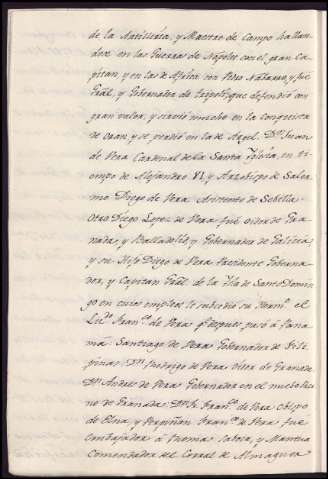 de la Artilleria, y Maestre de Campo hallan
dose en las Guerras de Napoles con el gran Ca
pitan y en las de Africa con Pedro Nabarro, y fue
Gral, y Gobernador de Tripol, que defendió con
gran valor, y sirvió mucho en la conquista
de Oran, y se perdió en la de Argel. Dn. Juan
de Vera Cardenal de la Santa Yglesia, en ti
empo de Alejandro VI, y Arzobispo de Saler
mo Diego de Vera Asistente de Sebilla
Otro Diego Lopez de Vera fué oidor de Gra
nada, y Valladolid, y Gobernador de Galicia
y su Hijo Diego de Vera Presidente Goberna
dor, y Capitan Gral. de la Ysla de Santo Domin
go en cuios empleos le subcedio su Herm.o el
Liz.do Fran.co de Vera qe. despues pasó á Pana
má Santiago de Vera Gobernador de Fili
pinas Dn. Rodrigo de Vera Vera de Granada
Dn. Andres de Vera Gobernador en el
no de Granada Dn. Fr. Fran.co de Vera obispo
de Elna, y Perpiñan Fran.co de Vera fué
embajador á Roma, Saboya, y Mantua
Comendador del Corral de Almaguer